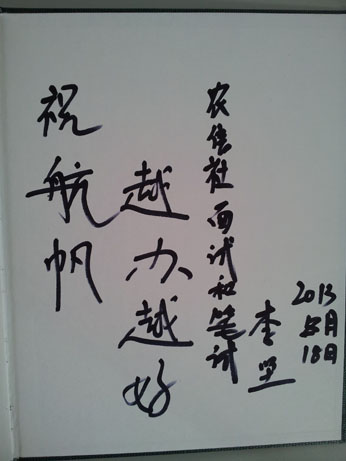 祝航帆
越办越好
农信社面试和笔试
李坚
2013
5月
18日